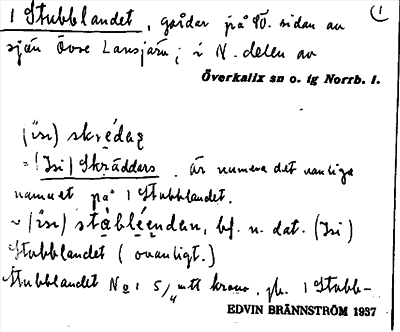 1 Stubblandet, gårdar på V. sidan av
sjön Övre Lansjärv; i N. delen av
Överkalix sn o. tg Norrb. l.
(isi) skrédaʒ
= (Isi) Skräddars. är numera det vanliga
namnet på 1 Stubblandet.
~ (isi) stàbléendan, bf. n. dat. (Isi)
Stubblandet (ovanligt.)
Stubblandet No 1 5/ mtt krono, jb. 1 Stubb-
EDVIN BRÄNNSTRÖM 1937